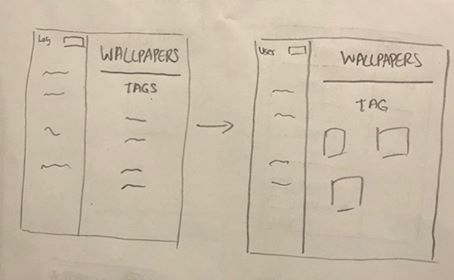 Log
WALLPAPERS
TAGS
User
WALLPAPERS
TAG